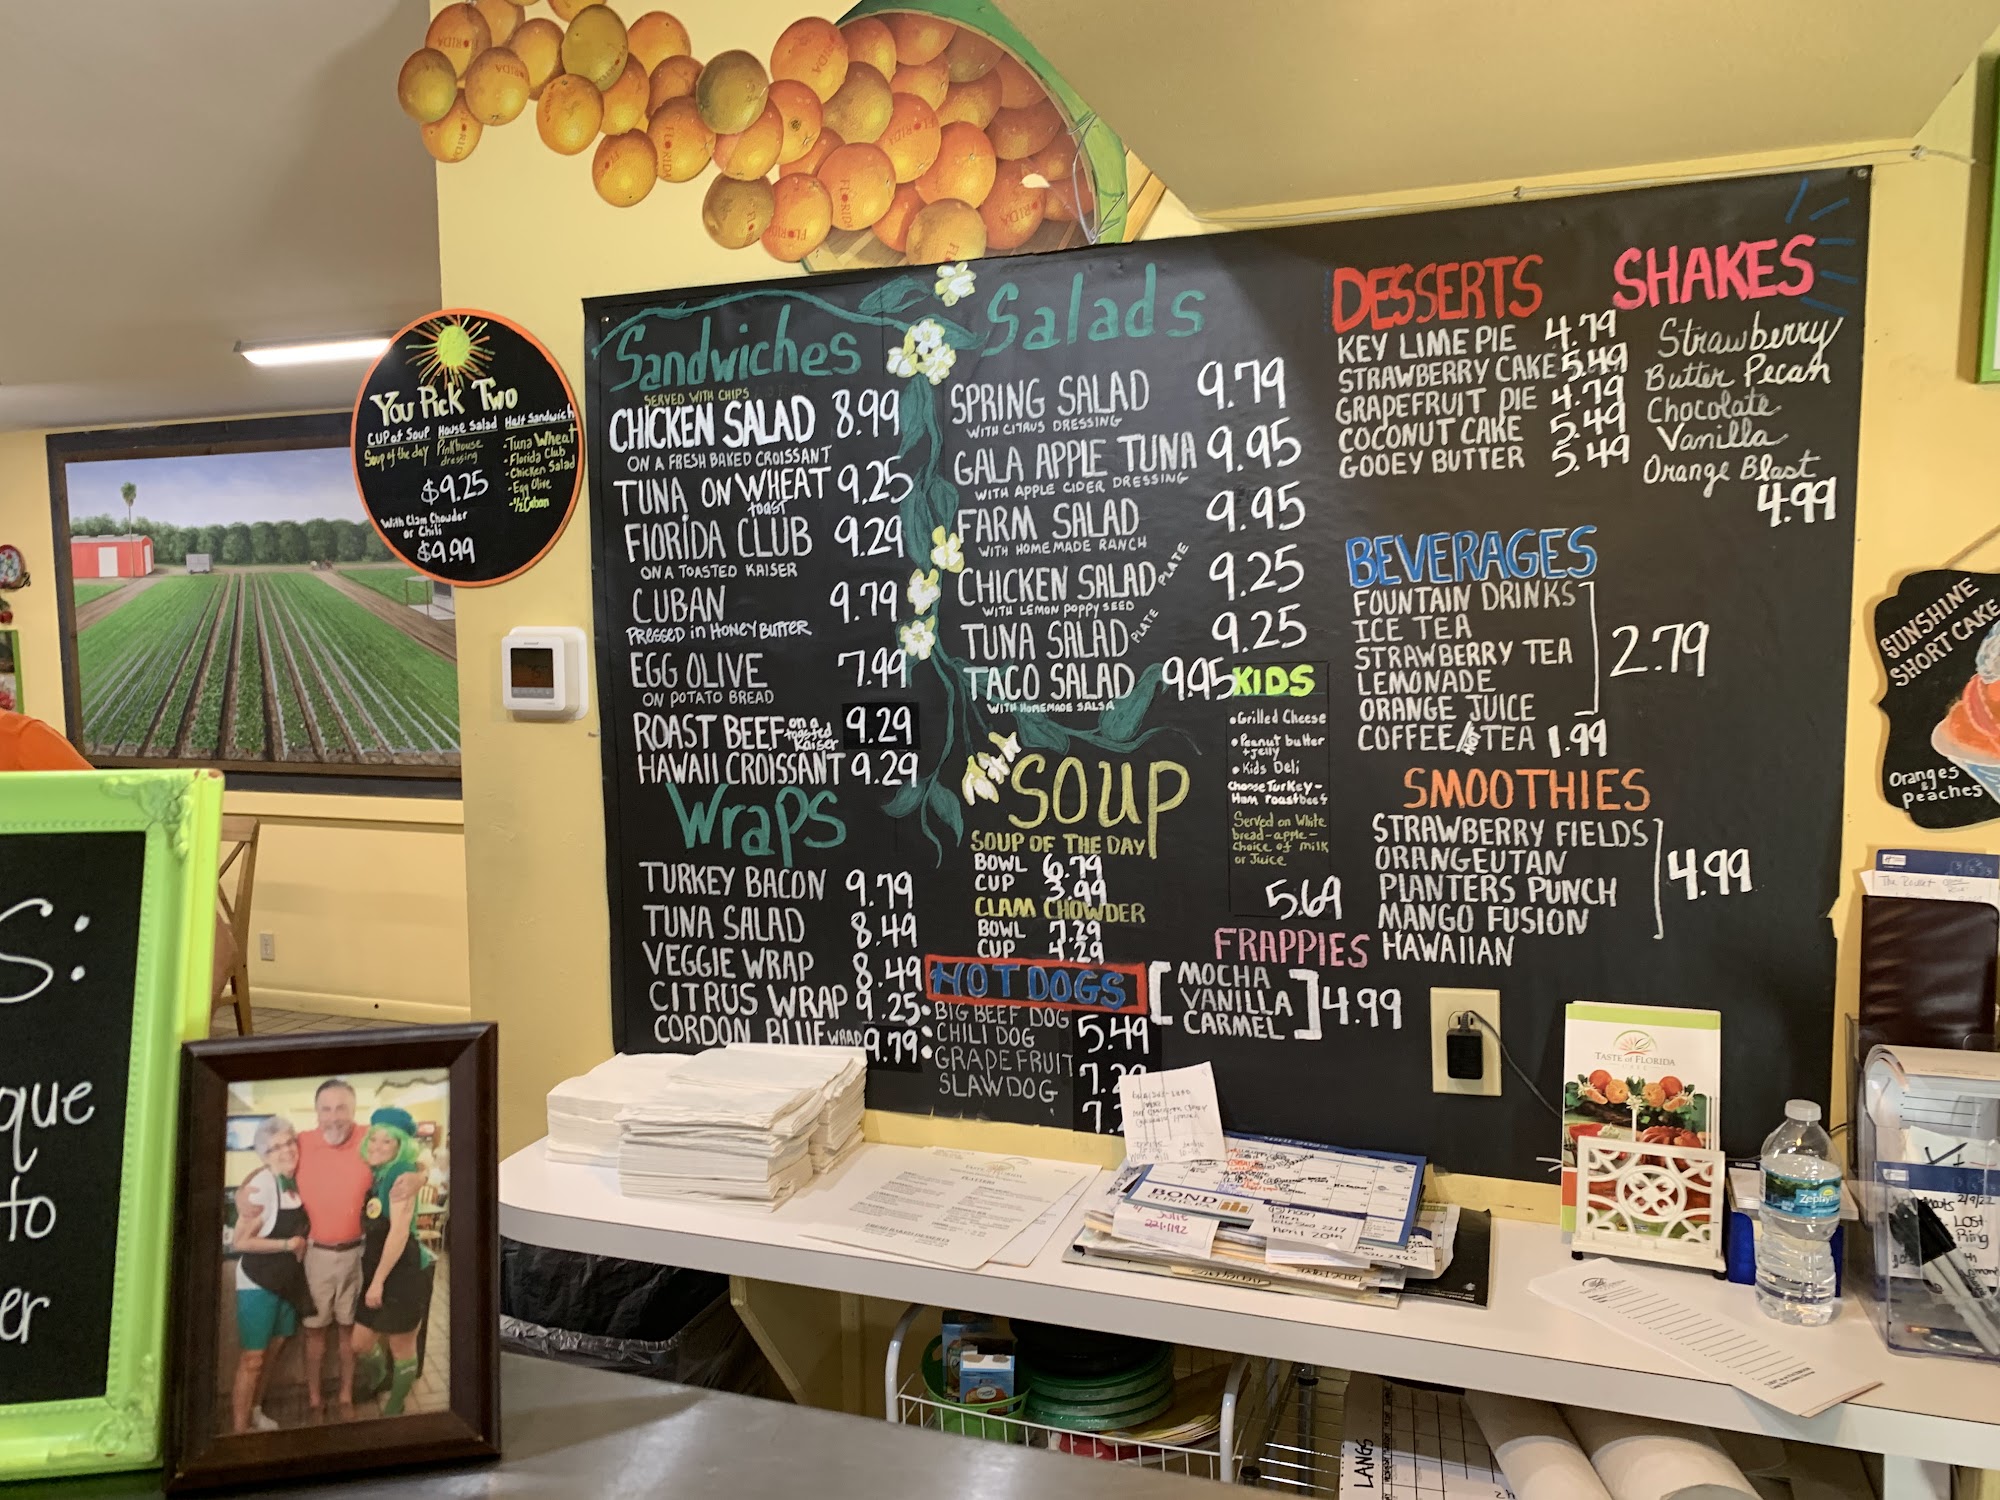 You Pick Two
Cup of Soup House Salad Half Sandwich
Soup of the day Pinkhouse dressing
-Tuna Wheat
-Florida Club
-Chicken Salad
-Egg Olive
-1/2 Cuban
$9.25
With Clam Chowder
or Chili
$9.99
Sandwiches
SERVED WITH CHIPS
CHICKEN SALAD 8.99
ON A FRESH BAKED CROISSANT
TUNA ON WHEAT 9.25
toast
FlORIDA CLUB 9.29
ON A TOASTED KAISER
CUBAN 9.79
PRESSED in HONEY BUTTER
EGG OLIVE 7.99
ON POTATO BREAD
ROAST BEEF on a toasted Kaiser 9.29
HAWAII CROISSANT 9.29
Wraps
TURKEY BACON 9.79
TUNA SALAD 8.49
VEGGIE WRAP 8.49
CITRUS WRAP 9.25
CORDON BLUE WRAP 9.79
Salads
SPRING SALAD 9.79
WITH CITRUS DRESSING
GALA APPLE TUNA 9.95
WITH APPLE CIDER DRESSING
FARM SALAD 9.95
WITH HOMEMADE RANCH
CHICKEN SALAD PLATE 9.25
WITH LEMON POPPY SEED
TUNA SALAD PLATE 9.25
TACO SALAD 9.95
WITH HOMEMADE SALSA
SOUP
SOUP OF THE DAY
BOWL 6.79
CUP 3.99
CLAM CHOWDER
BOWL 7.29
CUP 4.29
HOT DOGS
BIG BEEF DOG 5.49
CHILI DOG
GRAPEFRUIT
SLAW DOG
KIDS
•Grilled Cheese
•Peanut butter
+jelly
•Kids Deli
Choose Turkey-
Ham roastbeef
Served on White
bread-apple-
choice of milk
or Juice
5.69
FRAPPIES
MOCHA
VANILLA
CARMEL
4.99
DESSERTS
KEY LIME PIE 4.79
STRAWBERRY CAKE 5.49
GRAPEFRUIT PIE 4.79
COCONUT CAKE 5.49
GOOEY BUTTER 5.49
SHAKES
Strawberry
Butter Pecan
Chocolate
Vanilla
Orange Blast
4.99
BEVERAGES
FOUNTAIN DRINKS
ICE TEA
STRAWBERRY TEA
LEMONADE
ORANGE JUICE
2.79
COFFEE/HOT TEA 1.99
SMOOTHIES
STRAWBERRY FIELDS
ORANGEUTAN
PLANTERS PUNCH
MANGO FUSION
HAWAIIAN
4.99
SUNSHINE
SHORT CAKE
Oranges
&
Peaches
S:
que
to
er
TASTE of FLORIDA
TASTE of FLORIDA
PLATTERS
BOND
Julie
221-1192
April 20th
Zephyrhills
2/9/22
LOST
Ring
LANGS